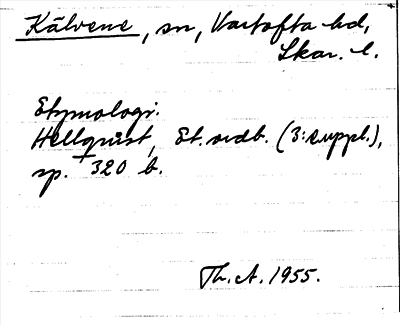 Kälvene, sn, Vartofta hd,
Skar. l.
Etymologi.
Hellquist, Et. ordb. (3: suppl.),
sp. 320 b.
Th. A. 1955.